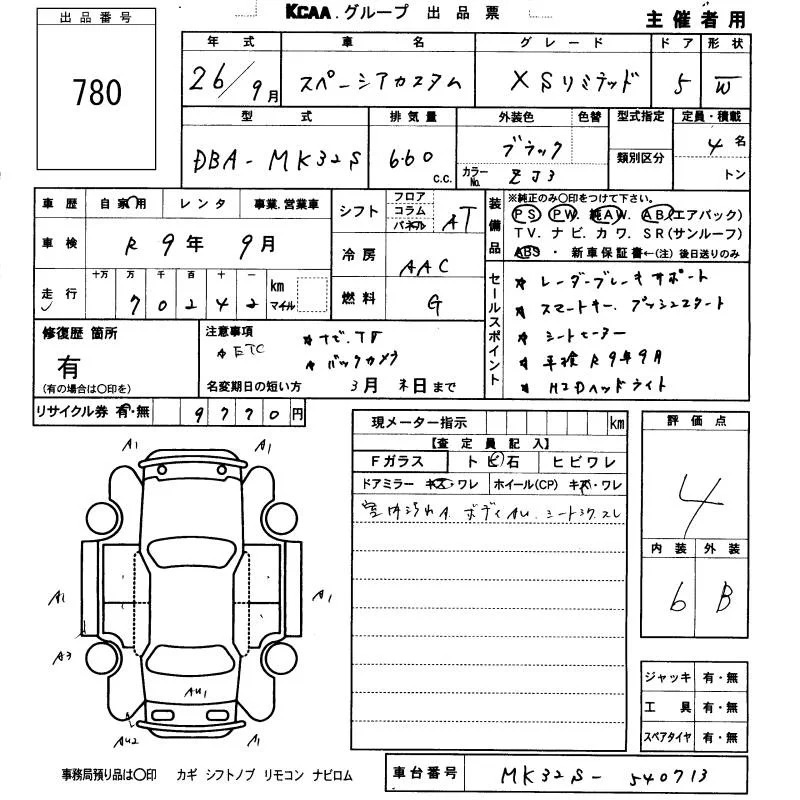 KCAA グループ 出品票
主催者用
出品番号
780
年式 車名 グレード ドア 形状
26/9月 スペーシアカスタム XSリミテッド 5 W
型式 排気量 外装色 色替 型式指定 定員・積載
DBA-MK32S 660 c.c. ブラック カラーNo. ZJ3 類別区分 4名
トン
車歴 自家用 レンタ 事業.営業車
車検 R9年9月
走行 十万 万 千 百 十 一 km マイル
70242
シフト フロア コラム パネル AT
冷房 AAC
燃料 G
装備品 ※純正のみ〇印をつけて下さい。
PS. PW. 純AW. AB.(エアバック)
TV. ナビ. カワ. SR(サンルーフ)
ABS・新車保証書←(注)後日送りのみ
セールスポイント
* レーダーブレーキサポート
* スマートキー. プッシュスタート
* シートヒーター
* 車検R9年9月
* HIDヘッドライト
修復歴 箇所
有
(有の場合は〇印を)
注意事項
* ETC
* ナビ.TV
* バックカメラ
名変期日の短い方 3月末日まで
リサイクル券 有・無 9770円
現メーター指示 km
【査定員記入】
Fガラス トビ石 ヒビワレ
ドアミラー キズ・ワレ ホイール(CP) キズ・ワレ
室内汚れA. ボディAU. シートシワ.スレ
評価点
4
内装 外装
6 B
ジャッキ 有・無
工具 有・無
スペアタイヤ 有・無
A1 A1
A1 A1
A3
AU1
AU2 A1
事務局預り品は〇印 カギ シフトノブ リモコン ナビロム
車台番号 MK32S-540713